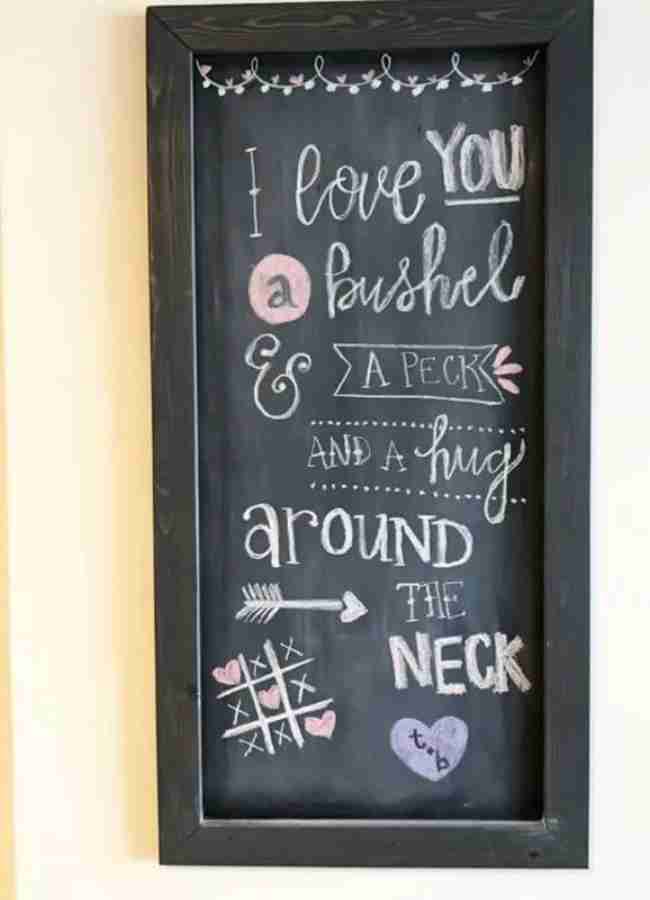 I love YOU
a bushel
& A PECK
AND A hug
aroUND
THE
NECK
X X
X
X
X X
t.b